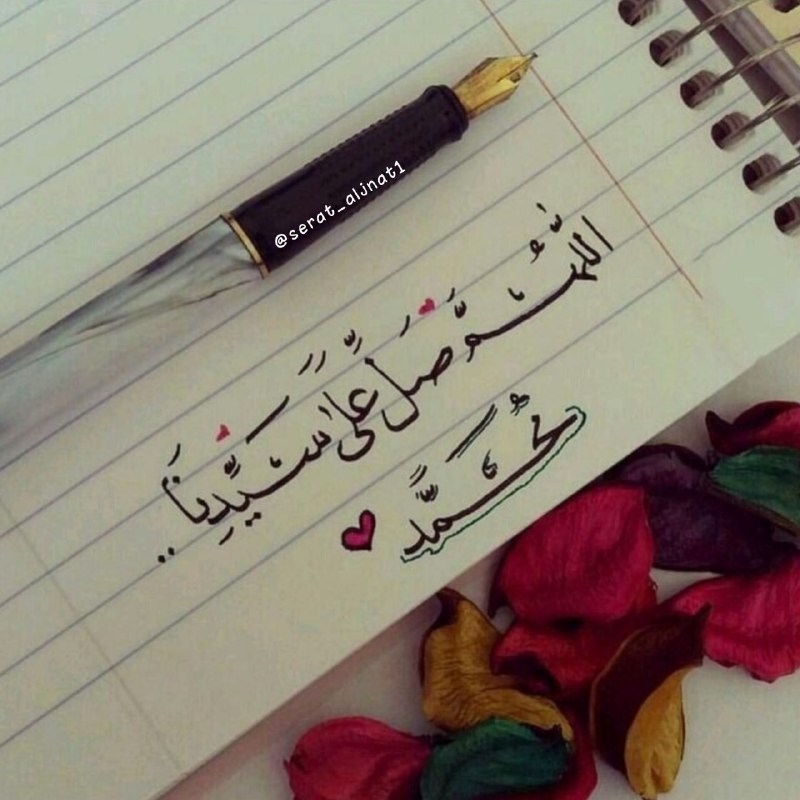 @serat_aljnat1
اللَّهُمَّ صَلِّ عَلَىٰ سَيِّدِنَا..
مُحَمَّد